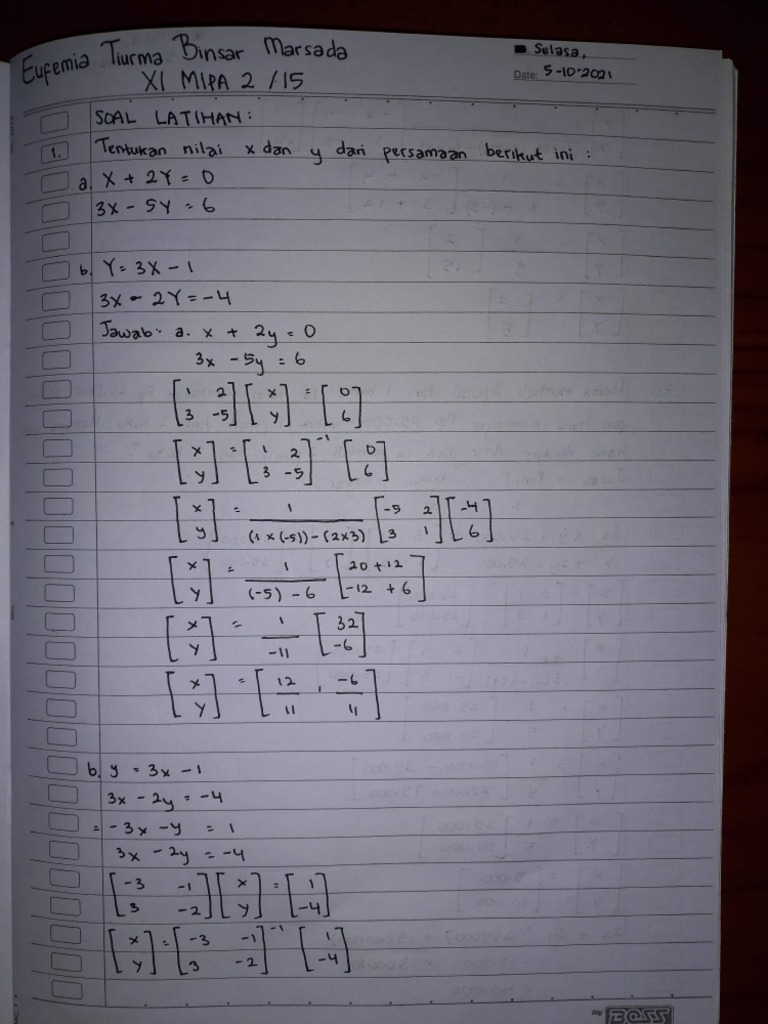 Eufemia Tiurma Binsar Marsada
XI MIPA 2 / 15
Selasa,
Date: 5-10-2021
SOAL LATIHAN :
1. Tentukan nilai x dan y dari persamaan berikut ini :
a. X + 2Y = 0
3X - 5Y = 6
b. Y = 3X - 1
3X - 2Y = -4
Jawab : a. x + 2y = 0
3x - 5y = 6
[1 2 [x = [0
3 -5] y] 6]
[x = [1 2 -1 [0
y] 3 -5] 6]
[x = 1 [-5 2 [-4
y] (1 x (-5)) - (2x3) 3 1] 6]
[x = 1 [20 + 12
y] (-5) - 6 -12 + 6]
[x = 1 [32
y] -11 -6]
[x = [12 , -6
y] 11 11]
b. y = 3x - 1
3x - 2y = -4
= -3x - y = 1
3x - 2y = -4
[-3 -1 [x = [1
3 -2] y] -4]
[x = [-3 -1 -1 [1
y] 3 -2] -4]
BOSS